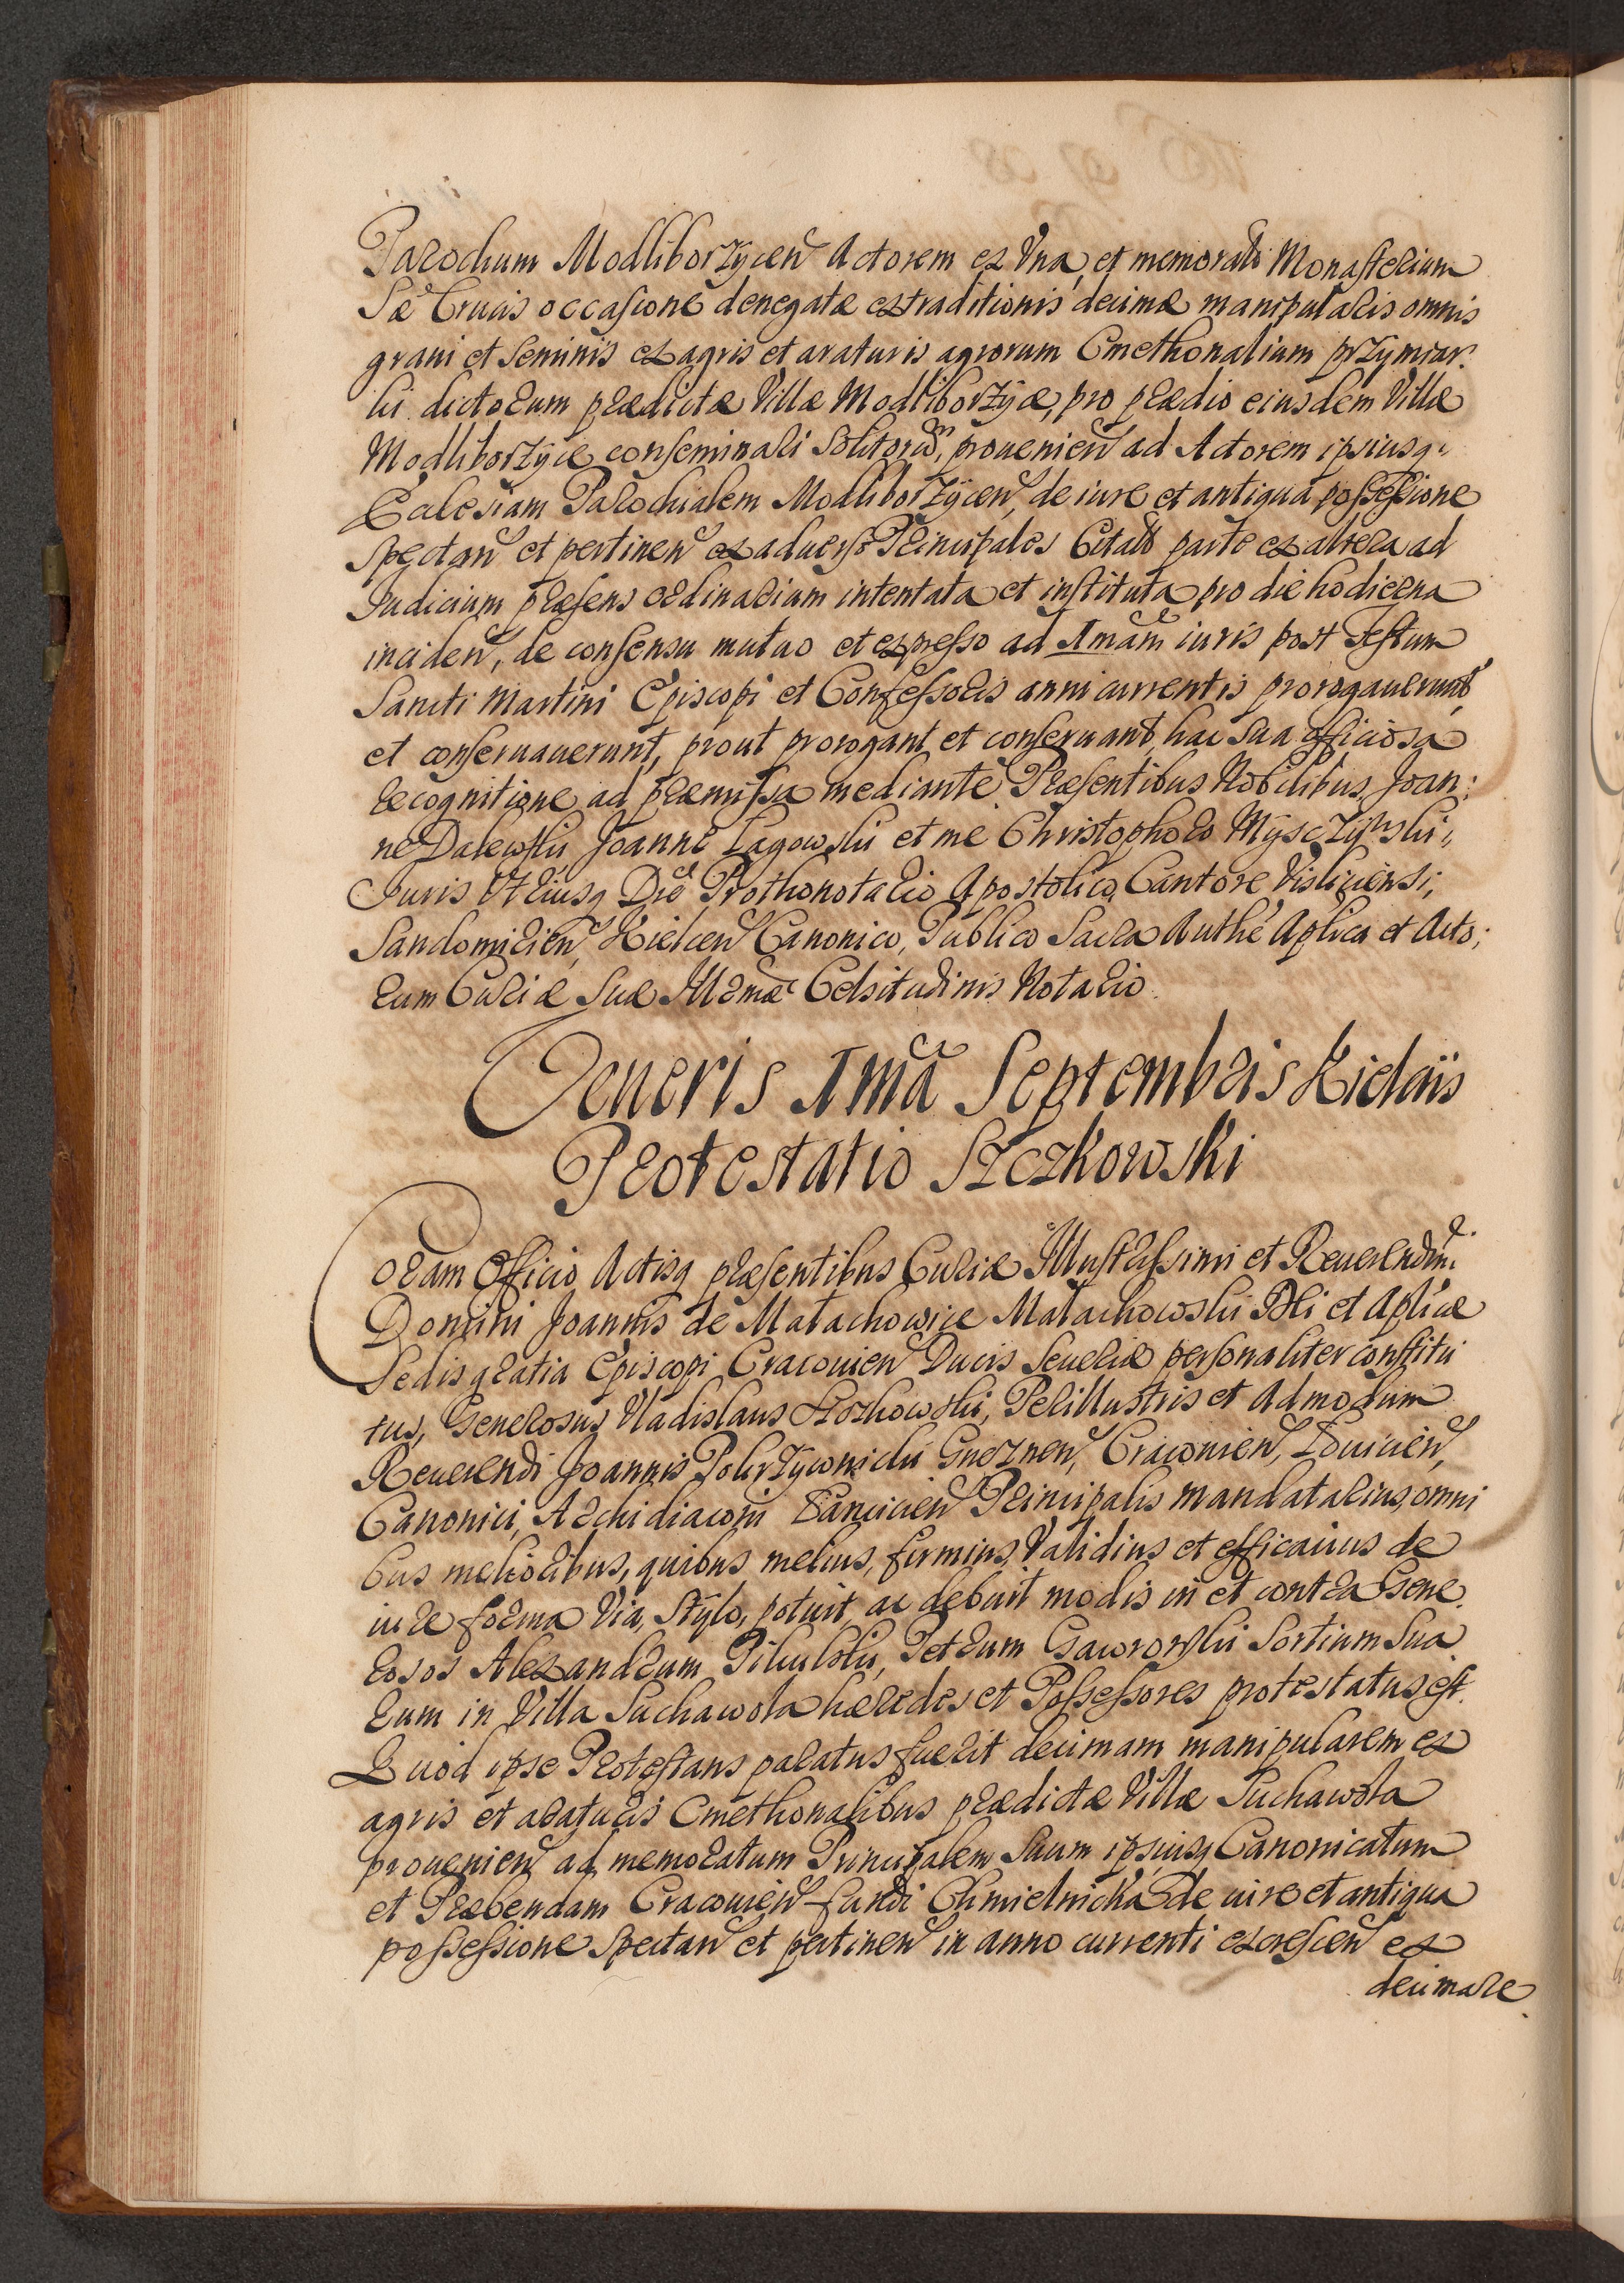 Parochum Modliborzycen̄ Actorem ex Vna, et memorat̄ Monasterium
S̄æ Crucis occasione denegatæ extraditionis decimæ manipularis omnis
grani et Seminis ex agris et araturis agrorum Cmethonalium przymiar:
ki dictorum prædictæ Villæ Modliborzycæ, pro prædio eiusdem Villæ
Modliborzyce conseminari Solitorum, prouenien̄ ad Actorem ipsiusq.
Ecclesiam Parochialem Modliborzÿcen̄, de iure et antiqua possessione
Spectan̄ et pertinen̄ ex aduerso Principales Citat̄ parte ex altera ad
Iudicium præsens ordinarium intentata et instituta pro die hodierna
inciden̄, de consensu mutuo et expresso ad Imam̄ iuris post Festum
Sancti Martini Episcopi et Confessoris anni currentis prorogauerunt,
et conseruauerunt, prout prorogant et conseruant, hac Sua officiosa
recognitione ad præmissa mediante Præsentibus Nobilibus, Joan:
ne Dalewski Joanne Łagowski et me Christophoro Mysczynski,
Juris Vtriusq Dre Prothonotario Apostolico, Cantore Visliciensi,
Sandomirien̄, Kielcen̄ Canonico, Publico Sacra Authe Aplica et Acto;
rum Curiæ Suæ Illrmæ Celsitudinis Notario.
Veneris Imā Septembris Kielciis
Protestatio Szczkowski
Coram Officio Actisq præsentibus Curiæ Illustrissimi et Reuerendmi
Domini Joannis de Małachowice Małachowski Dei et Aplicæ
Sedis gratia Episcopi Cracouien̄ Ducis Seueriæ personaliter constitu
tus, Generosus Vladislaus Szczkowski, Perillustris et Admodum
Reuerendi Joannis Pokrzywnicki Gneznen̄, Cracouien̄, Łouicien̄,
Canonici, Archidiaconi Łancicien̄ Principalis mandatarius, omni
bus melioribus, quibus melius, firmius, Validius et efficacius de
iure forma Via, Stylo, potuit, ac debuit modis in et contra Gene.
rosos Alexandrum Pikulski, Petrum Gaworowski Sortium Sua
rum in Villa Suchawola hæredes et Possessores protestatus est.
Quod ipse Protestans paratus fuerit decimam manipularem ex
agris et araturis Cmethonalibus prædictæ Villæ Suchawola
prouenien̄ ad memoratum Principalem Suum ipsiusq Canonicatum
et Præbendam Cracouien̄ fundi Chmielnicka De iure et antiqua
possessione Spectan̄ et pertinen̄ in anno currenti excrescen̄ ex
decimare